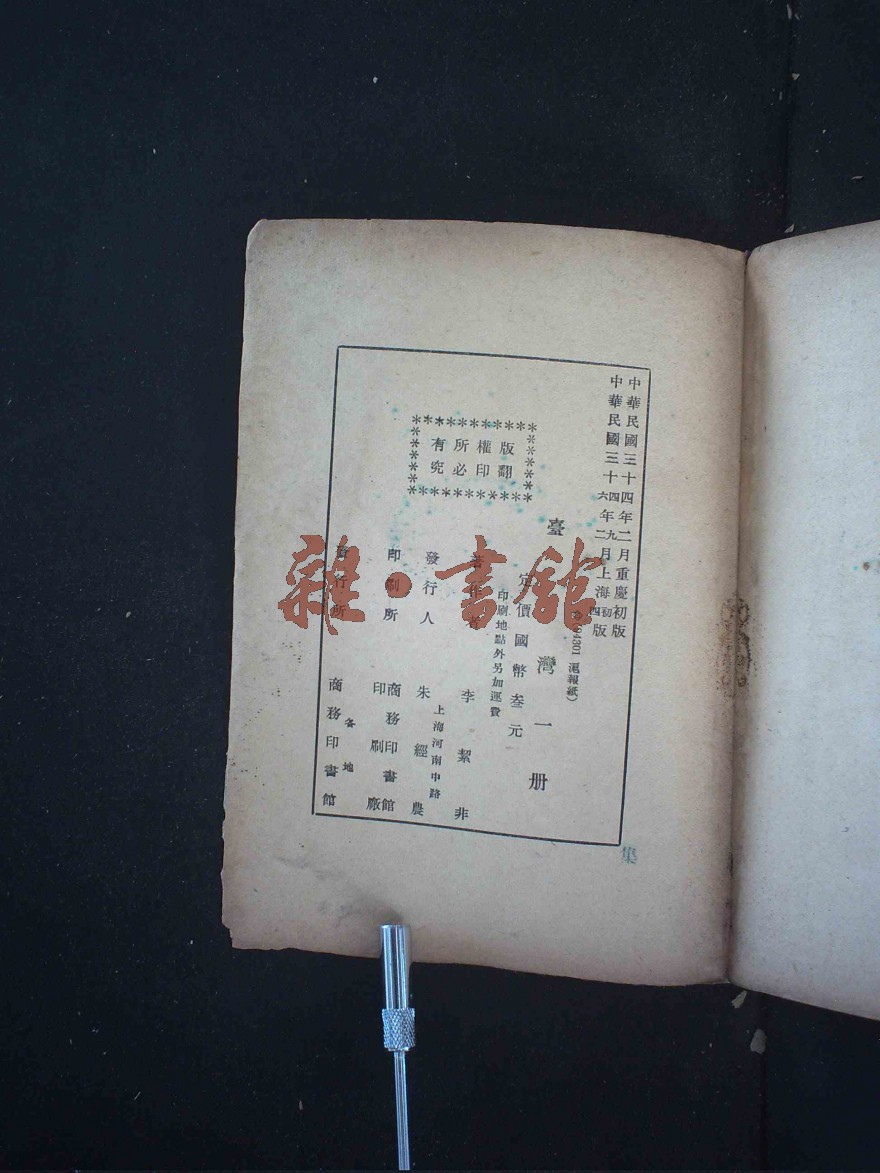 中華民國三十四年二月重慶初版
中華民國三十四年九月上海初版
六 二 四
(94301 滬報紙)
臺灣一册
定價國幣叁元
印刷地點外另加運費
版權所有
翻印必究
著作者 李絜非
發行人 朱經農
上海河南中路
印刷所 商務印書館印刷廠
發行所 商務印書館
各地
雜·書館
集